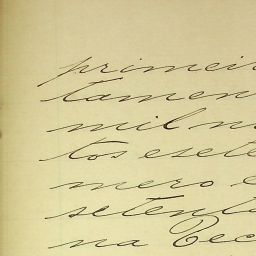 primeir
tamen
mil no
tos e sete
mero e
setenta
na Sec